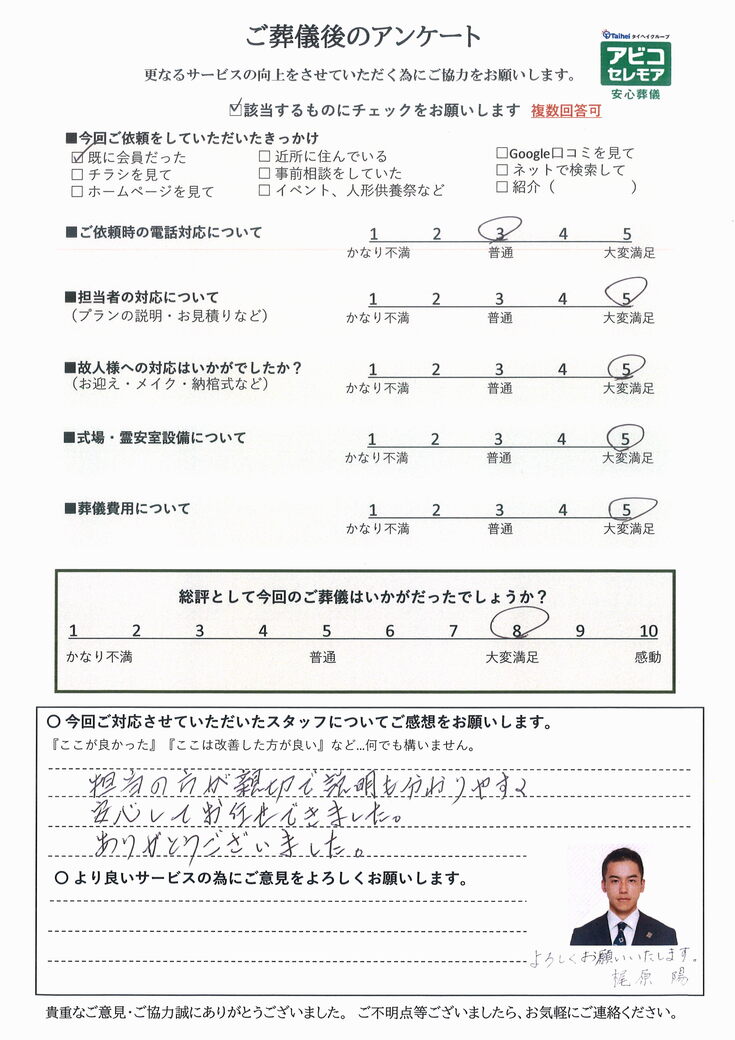 ご葬儀後のアンケート
Taihei タイヘイグループ
アビコ
セレモア
安心葬儀
更なるサービスの向上をさせていただく為にご協力をお願いします。
☑該当するものにチェックをお願いします 複数回答可
■今回ご依頼をしていただいたきっかけ
☑既に会員だった □近所に住んでいる □Google口コミを見て
□チラシを見て □事前相談をしていた □ネットで検索して
□ホームページを見て □イベント、人形供養祭など □紹介( )
■ご依頼時の電話対応について 1 2 3 4 5
かなり不満 普通 大変満足
■担当者の対応について 1 2 3 4 5
(プランの説明・お見積りなど) かなり不満 普通 大変満足
■故人様への対応はいかがでしたか? 1 2 3 4 5
(お迎え・メイク・納棺式など) かなり不満 普通 大変満足
■式場・霊安室設備について 1 2 3 4 5
かなり不満 普通 大変満足
■葬儀費用について 1 2 3 4 5
かなり不満 普通 大変満足
総評として今回のご葬儀はいかがだったでしょうか?
1 2 3 4 5 6 7 8 9 10
かなり不満 普通 大変満足 感動
〇 今回ご対応させていただいたスタッフについてご感想をお願いします。
『ここが良かった』『ここは改善した方が良い』など…何でも構いません。
担当の方が親切で説明も分かりやすく
安心してお任せできました。
ありがとうございました。
〇 より良いサービスの為にご意見をよろしくお願いします。
よろしくお願いいたします。
梶原 陽
貴重なご意見・ご協力誠にありがとうございました。 ご不明点等ございましたら、お気軽にご連絡ください。